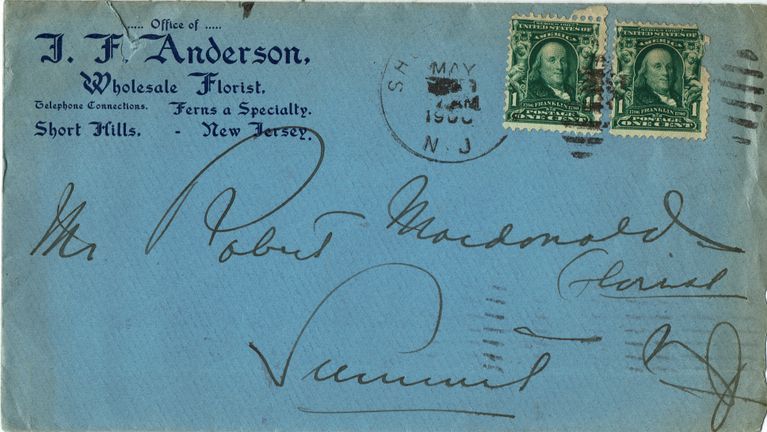 ..... Office of .....
J. F. Anderson,
Wholesale Florist.
Telephone Connections. Ferns a Specialty.
Short Hills. - New Jersey.
SH
MAY
AM
N. J.
SERIES 1902
UNITED STATES OF
AMERICA
1 FRANKLIN 1
POSTAGE
ONE CENT
SERIES 1902
UNITED STATES OF
AMERICA
1 FRANKLIN 1
POSTAGE
ONE CENT
Mr Robert Macdonald
Florist
Summit NJ